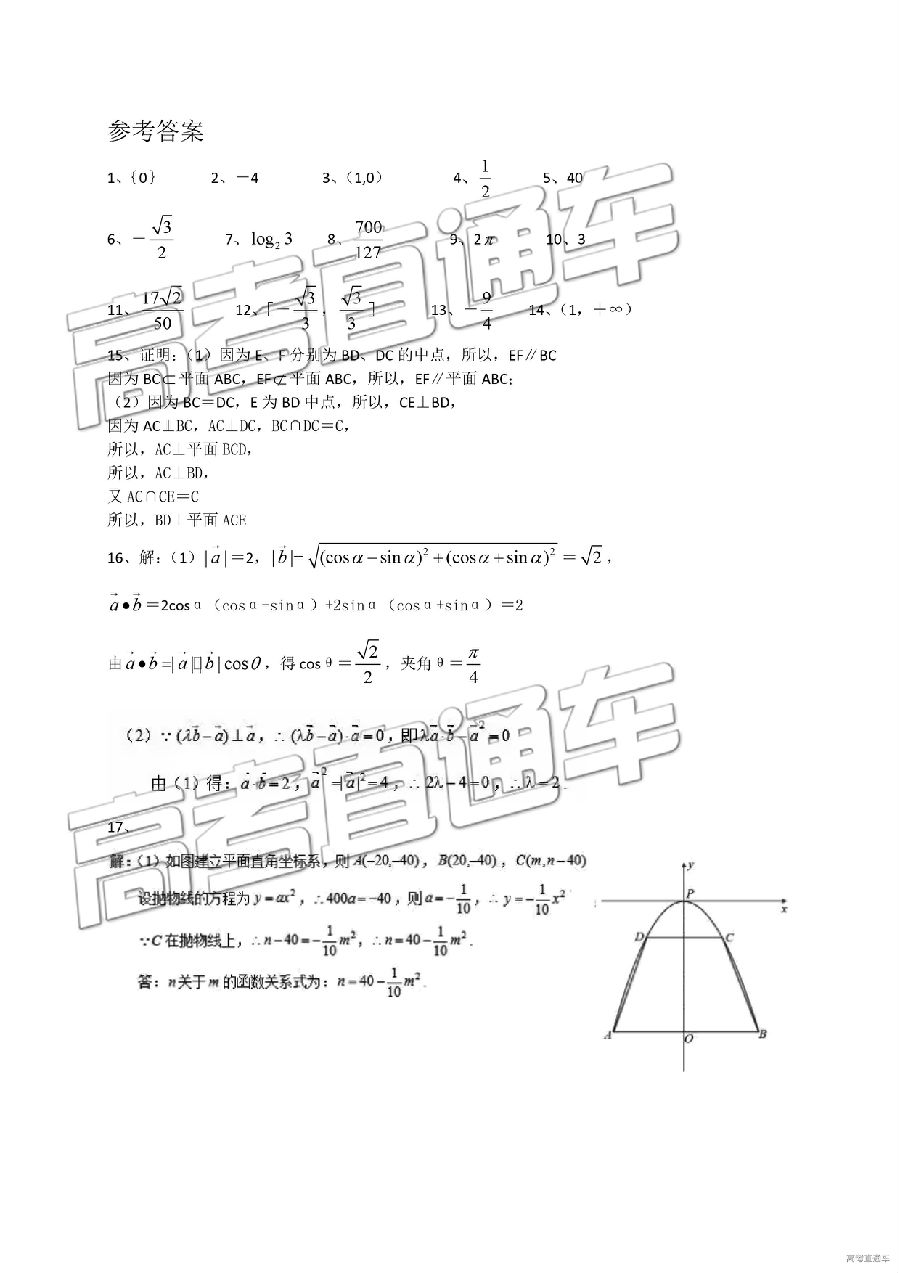 参考答案
1、{0} 2、－4 3、(1,0) 4、1/2 5、40
6、－√3/2 7、log₂3 8、700/127 9、2π 10、3
11、17√2/50 12、[－√3/3，√3/3] 13、－9/4 14、(1，＋∞)
15、证明：(1) 因为 E、F 分别为 BD、DC 的中点，所以，EF∥BC
因为 BC⊂平面 ABC，EF⊄平面 ABC，所以，EF∥平面 ABC；
(2) 因为 BC＝DC，E 为 BD 中点，所以，CE⊥BD，
因为 AC⊥BC，AC⊥DC，BC∩DC＝C，
所以，AC⊥平面 BCD，
所以，AC⊥BD，
又 AC∩CE＝C
所以，BD⊥平面 ACE
16、解：(1) |a⃗|＝2，|b⃗|=√((cosα－sinα)²＋(cosα＋sinα)²)＝√2，
a⃗•b⃗＝2cosα（cosα-sinα）+2sinα（cosα+sinα）＝2
由a⃗•b⃗=|a⃗||b⃗|cosθ，得 cosθ＝√2/2，夹角θ＝π/4
(2) ∵(λb⃗－a⃗)⊥a⃗，∴(λb⃗－a⃗)·a⃗＝0，即λa⃗·b⃗－a⃗²＝0
由(1)得：a⃗·b⃗＝2，a⃗²＝|a⃗|²＝4，∴2λ－4＝0，∴λ＝2.
17、
解：(1) 如图建立平面直角坐标系，则A(－20,－40)，B(20,－40)，C(m,n－40)
设抛物线的方程为y＝ax²，∴400a＝－40，则a＝－1/10，∴y＝－1/10x²
∵C在抛物线上，∴n－40＝－1/10m²，∴n＝40－1/10m².
答：n关于m的函数关系式为：n＝40－1/10m².
y
P
x
D C
A O B
高考直通车
高考直通车
高考直通车